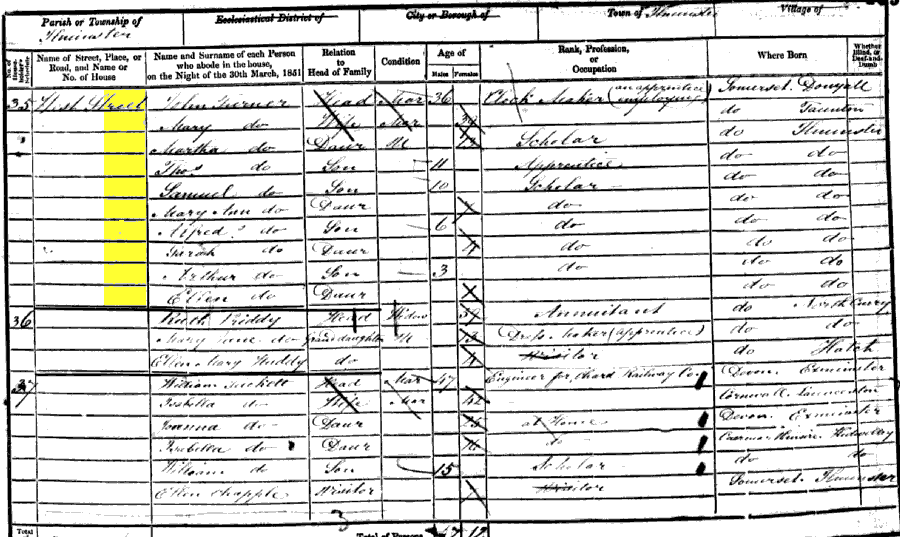 Parish or Township of Ecclesiastical District of City or Borough of Town of Ilminster Village of
Ilminster
No. of Householder's Schedule Name of Street, Place, or Road, and Name or No. of House Name and Surname of each Person who abode in the house, on the Night of the 30th March, 1851 Relation to Head of Family Condition Age of Males Females Rank, Profession, or Occupation Where Born Whether Blind, or Deaf-and-Dumb
35 West Street John Turner Head Mar 36 Clock Maker (an apprentice employing) Somerset Donyatt
Mary do Wife Mar do Taunton
Martha do Daur Scholar do Ilminster
Thos do Son 11 Apprentice do do
Samuel do Son 10 Scholar do do
Mary Ann do Daur do do do
Alfred do Son 6 do do do
Sarah do Daur 4 do do do
Arthur do Son 3 do do do
Ellen do Daur do do
36 Ruth Priddy Head Widow Annuitant do North Curry
Mary Jane do Granddaughter Dress Maker (apprentice) do do
Ellen Mary do Visitor do Hatch
37 William Head Mar 47 Engineer for Chard Railway Co. Devon Exminster
Isabella do Wife Mar Cornwall Launceston
Joanna do Daur at Home Devon Exminster
Isabella do Daur do Kidwelly
William do Son 15 Scholar do do
Ellen Chapple Visitor Visitor Somerset Ilminster
3
Total Total of Persons